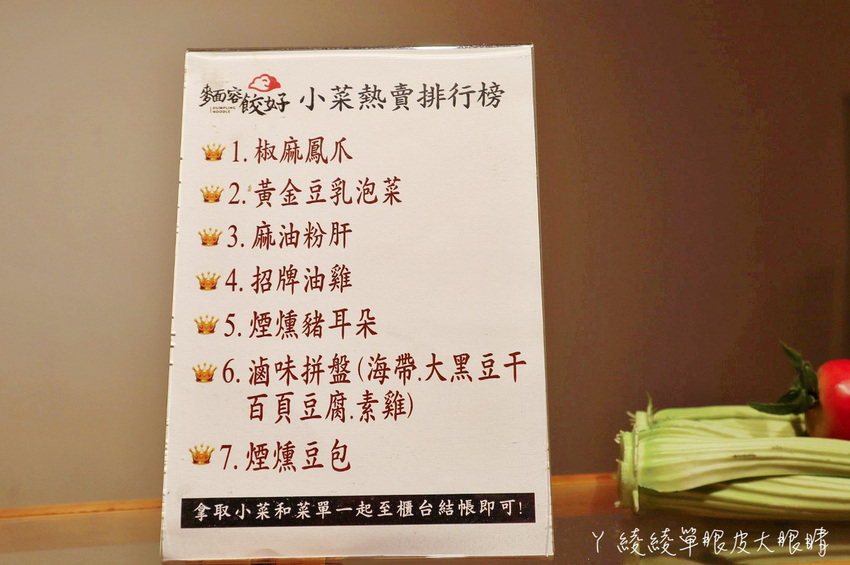 麵容餃好 小菜熱賣排行榜
DUMPLING
NOODLE
1. 椒麻鳳爪
2. 黃金豆乳泡菜
3. 麻油粉肝
4. 招牌油雞
5. 煙燻豬耳朵
6. 滷味拼盤(海帶.大黑豆干
百頁豆腐.素雞)
7. 煙燻豆包
拿取小菜和菜單一起至櫃台結帳即可!
ㄚ綾綾單眼皮大眼睛